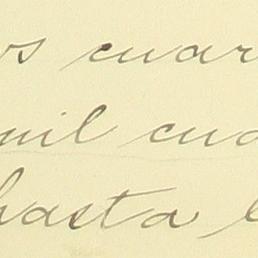 os cuar
mil cua
hasta l